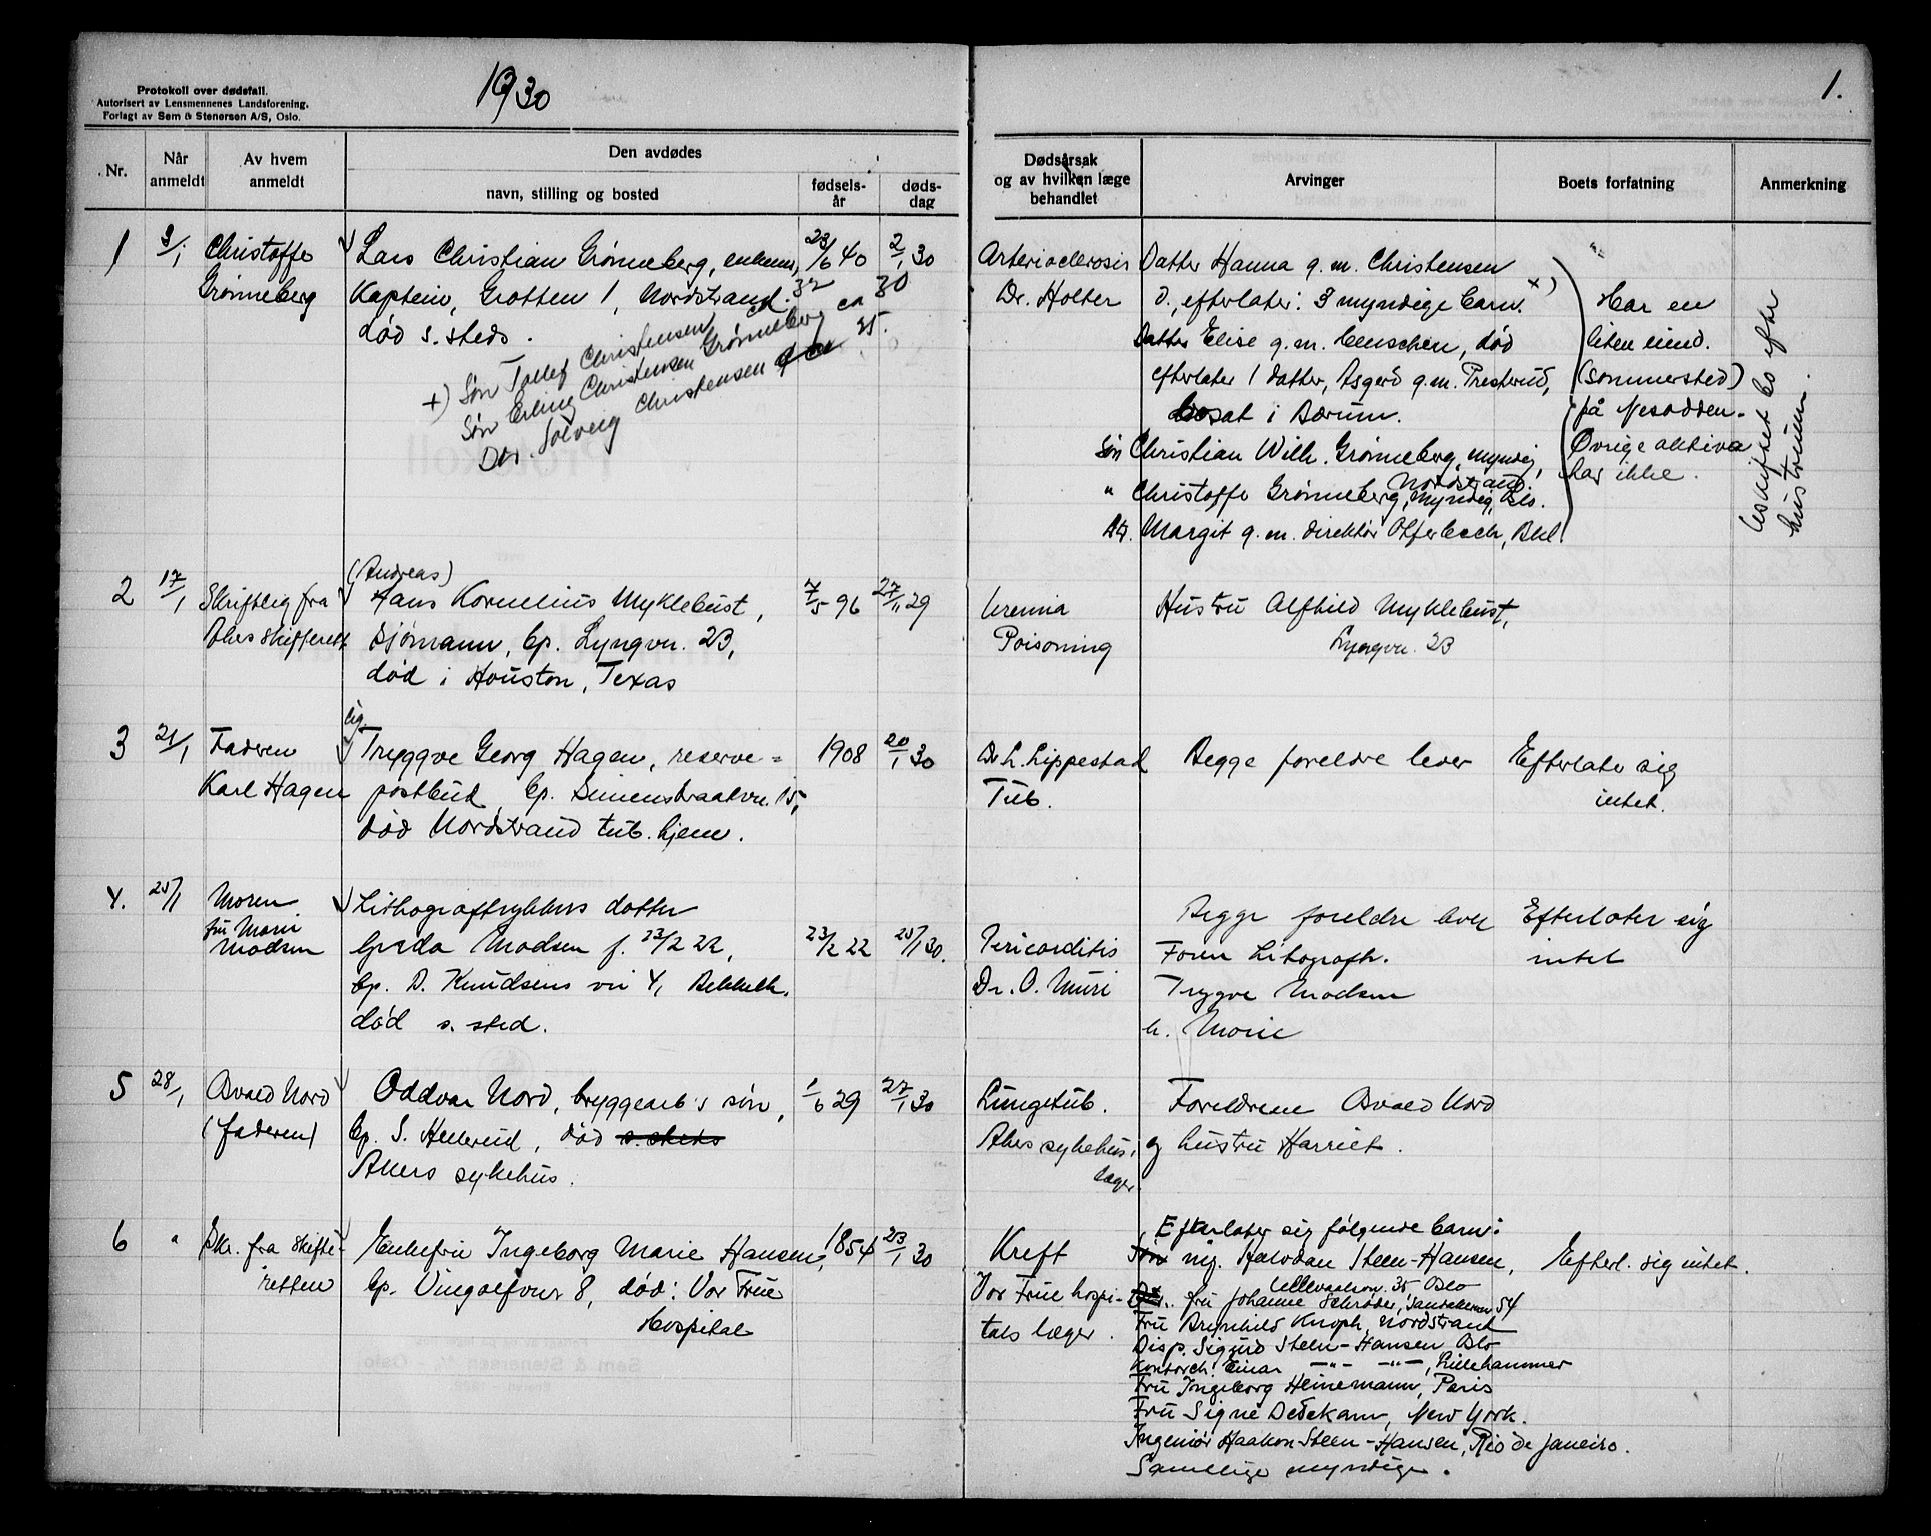 Protokoll over dødsfall.
Autorisert av Lensmennenes Landsforening.
Forlagt av Sem & Stenersen A/S, Oslo.
1930
1.
Nr.
Når anmeldt
Av hvem anmeldt
Den avdødes
navn, stilling og bosted
fødsels-år
døds-dag
Dødsårsak og av hvilken læge behandlet
Arvinger
Boets forfatning
Anmerkning
1
3/1
Christoffe
Grønneberg
Lars Christian Grønneberg, enkem.,
Kaptein, Grotten 1, Nordstrand.
død s. steds.
23/6 40
2/1 30
+) Søn Tollef Christensen ca 32
Søn Erling Christensen Grønneberg ca 30
Dtr. Solveig Christensen 25.
Arteriosclerosis
Dr. Holter
Datter Hanna g.m. Christensen
d., efterlater: 3 myndige barn. +)
Datter Elise g.m. Censchen, død
efterlater 1 datter, Asgerd g.m. Presterud,
bosat i Bærum.
Søn Christian Wilh. Grønneberg, myndig,
Nordstrand
" Christoffe Grønneberg, myndig, Oslo.
Dtr. Margit g.m. direktør Offerbech, Bkl.
Har en
liten eiend.
(sommersted)
på Nesodden.
Øvrige aktiva
har ikke.
Uskiftet bo efter
hustruen.
2
17/1
Skriftlig fra
Akers skifterett
(Andreas)
Hans Kornelius Myklebust,
sjømann, bp. Lyngvn. 23,
død i Houston, Texas
7/5 96
27/11 29
Uremia
Poisoning
Hustru Alfhild Myklebust,
Lyngvn. 23
3
21/1
Faderen
Karl Hagen
ug.
Tryggve Georg Hagen, reserve=
postbud, bp. Simenstraatvn. 15,
død Nordstrand tub. hjem.
1908
20/1 30
Dr. L. Lippestad
Tub.
Begge foreldre lever
Efterlater sig
intet.
4.
25/1
Moren
fru Marie
Madsen
Lithograftrykkers datter
Gerda Madsen f. 23/2 22,
bp. D. Knudsens vei 4, Bekkelh.
død s. sted.
23/2 22
25/1 30.
Pericarditis
Dr. O. Muri
Begge foreldre lever
Faren Litograftr.
Trygve Madsen
h. Marie
Efterlater sig
intet
5
28/1
Osvald Nord
(faderen)
Oddvar Nord, bryggearb's søn,
bp. S. Hellerud, død s. steds
Akers sykehus.
1/6 29
27/1 30
Lungetub.
Akers sykehus,
læger.
Foreldrene Osvald Nord
og hustru Harriet.
6
"
Skr. fra skifte-
retten
Enkefru Ingeborg Marie Hansen,
bp. Vingolfvn 8, død: Vor Frue
Hospital
1854
23/1 30
Kreft
Vor Frue hospi-
tals læger.
Efterlater sig følgende barn:
Søn ing. Halvdan Steen-Hansen,
Ullevaalsvn. 35, Oslo
Dtr. fru Johanne Schrøder, Sandakerveien 54
Fru Brynhild Knoph, Nordstrand
Disp. Sigurd Steen-Hansen Oslo
Kontorch. Einar —"— —"—, Lillehammer
Fru Ingeborg Heinemann, Paris
Fru Signe Dedekam, New York.
Ingeniør Haakon Steen-Hansen, Rio de Janeiro.
Samtlige myndige.
Efterl. sig intet.